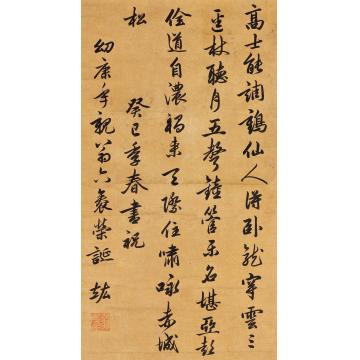 高士能調鶴仙人得臥龍穿雲三
逕杖聽月五聲鐘管樂名堪亞彭
佺道自濃來天際住嘯咏赤城
松
癸巳季春書祝
幼康年親翁六袠榮誕